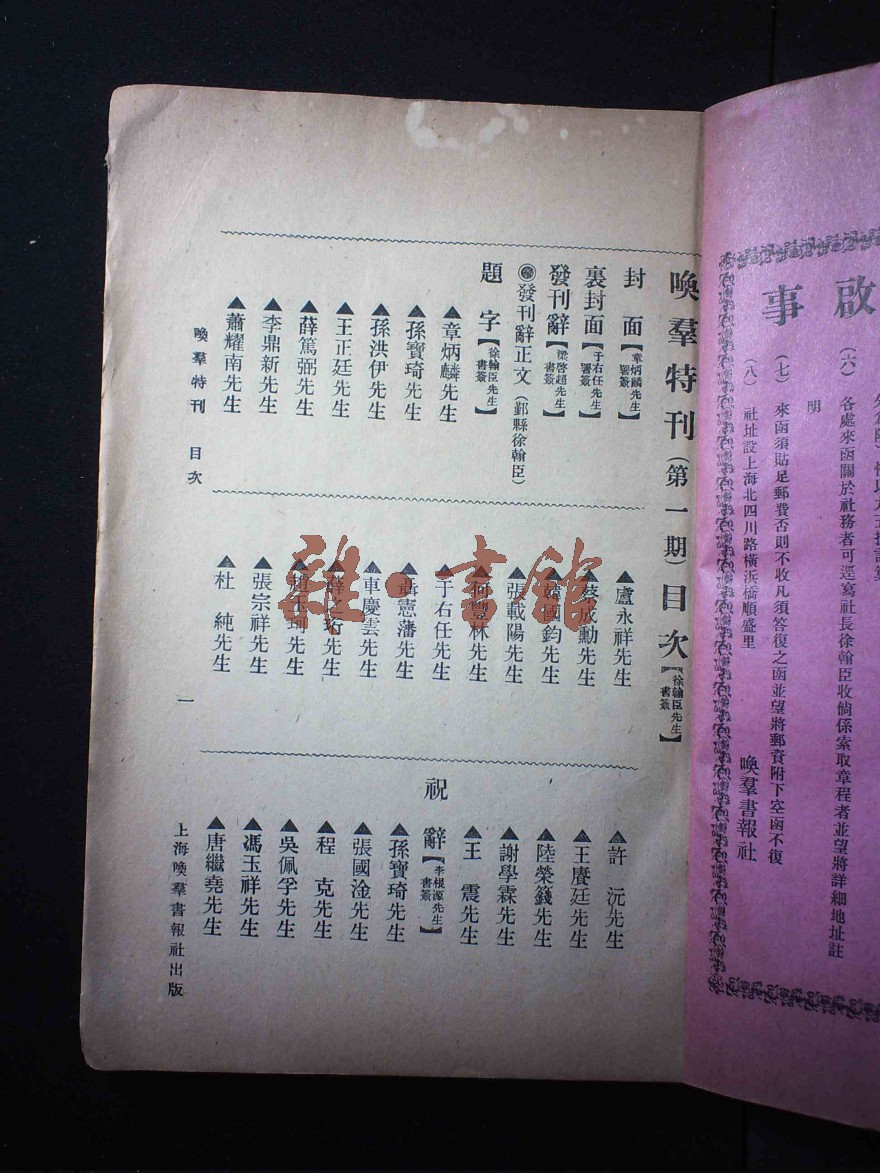 啟事
（六）各處來函關於社務者可逕寫社長徐翰臣收倘係索取章程者並望將詳細地址註
明
（七）來函須貼足郵費否則不收凡須答復之函並望將郵資附下空函不復
（八）社址設上海北四川路橫浜橋順盛里
喚羣書報社
喚羣特刊（第一期）目次【徐翰臣先生書簽】
封面【章炳麟先生署簽】
裏封面【于右任先生署簽】
發刊辭【梁啓超先生書簽】
發刊辭正文（鄞縣徐翰臣）
題字【徐翰臣先生書簽】
▲章炳麟先生
▲孫寶琦先生
▲孫洪伊先生
▲王正廷先生
▲薛篤弼先生
▲李鼎新先生
▲蕭耀南先生
▲盧永祥先生
▲蔡成勳先生
▲韓國鈞先生
▲張載陽先生
▲何豐林先生
▲于右任先生
▲聶憲藩先生
▲車慶雲先生
▲薛之珩先生
▲趙玉珂先生
▲張宗祥先生
▲杜純先生
▲許沅先生
▲王賡廷先生
▲陸榮籛先生
▲謝學霖先生
▲王震先生
祝辭【李根源先生書簽】
▲孫寶琦先生
▲張國淦先生
▲程克先生
▲吳佩孚先生
▲馮玉祥先生
▲唐繼堯先生
喚羣特刊 目次
一
上海喚羣書報社出版
雜·書館